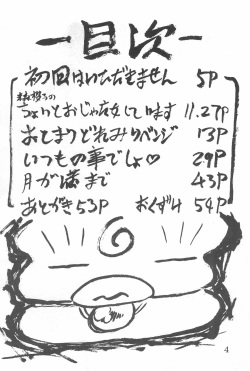 ー目次ー
初回はいただきません 5P
ちょいとおじゃまして います 11.27P
おとまりどれみリベンジ 13P
いつもの事でしょ♡ 29P
月が満まで 43P
あとがき53P おくずけ 54P
4